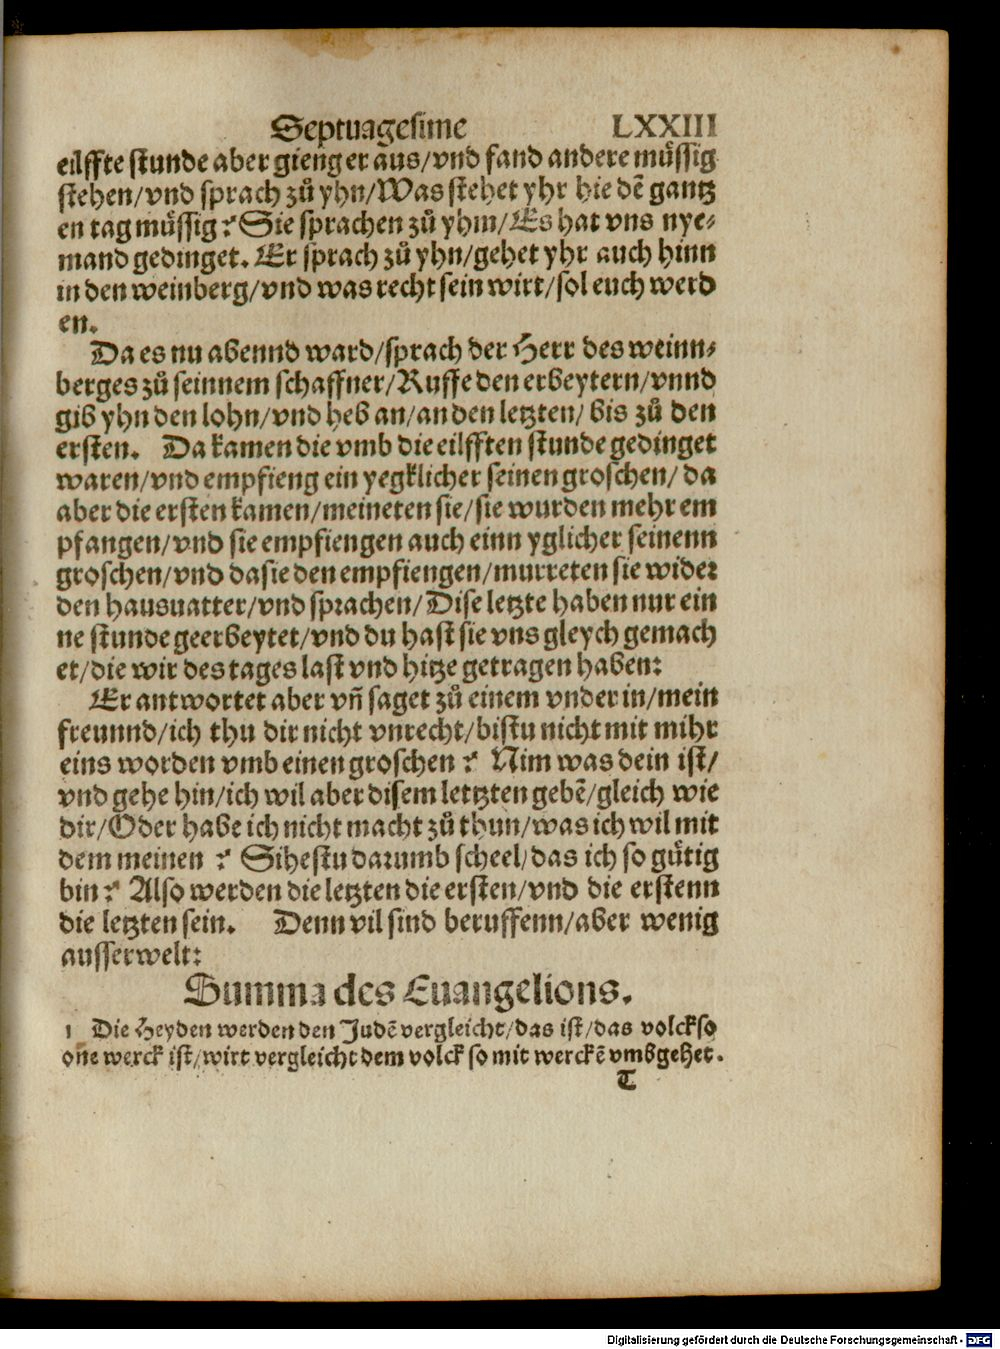 Septuagesime LXXIII
eilffte stunde aber gieng er aus/vnd fand andere muͤssig
stehen/vnd sprach zuͦ yhn/Was stehet yhr hie dē gantz
en tag muͤssig? Sie sprachen zuͦ yhm/Es hat vns nye⸗
mand gedinget. Er sprach zuͦ yhn/gehet yhr auch hinn
in den weinberg/vnd was recht sein wirt/sol euch werd
en.
Da es nu abennd ward/sprach der Herr des weinn⸗
berges zuͦ seinnem schaffner/Ruffe den erbeytern/vnnd
gib yhn den lohn/vnd heb an/an den letzten/ bis zuͦ den
ersten. Da kamen die vmb die eilfften stunde gedinget
waren/vnd empfieng ein yegklicher seinen groschen/ da
aber die ersten kamen/meineten sie/sie wurden mehr em
pfangen/vnd sie empfiengen auch einn yglicher seinenn
groschen/vnd da sie den empfiengen/murreten sie wider
den hausuatter/vnd sprachen/Dise letzte haben nur ein
ne stunde geerbeytet/vnd du hast sie vns gleych gemach
et/die wir des tages last vnd hitze getragen haben:
Er antwortet aber vñ saget zuͦ einem vnder in/mein
freunnd/ich thu dir nicht vnrecht/bistu nicht mit mihr
eins worden vmb einen groschen? Nim was dein ist/
vnd gehe hin/ich wil aber disem letzten gebē/gleich wie
dir/Oder habe ich nicht macht zuͦ thun/was ich wil mit
dem meinen? Sihestu darumb scheel/das ich so guͤtig
bin? Also werden die letzten die ersten/vnd die erstenn
die letzten sein. Denn vil sind beruffenn/aber wenig
ausserwelt:
Summa des Euangelions.
1 Die Heyden werden den Judē vergleicht/das ist/das volck so
one werck ist/wirt vergleicht dem volck so mit werckē vmbgehet.
T
Digitalisierung gefördert durch die Deutsche Forschungsgemeinschaft - DFG